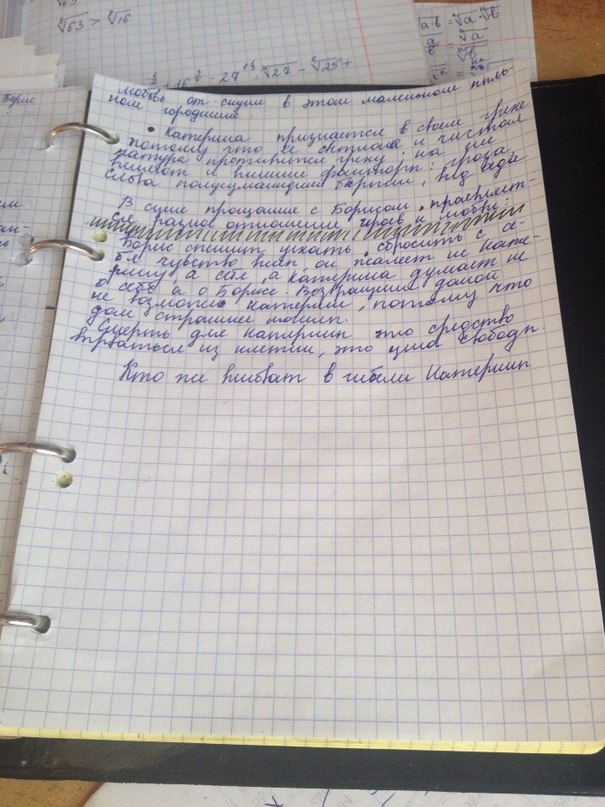 ∜63 > ∜16
Борис
любовь от скуки в этом маленьком пыль-
ном городишке
• Катерина признается в своем грехе
потому что ее светлая и чистая
натура противится греху; на нее
влияют и внешние факторы: гроза,
слова полусумашедшей барыни, вид ада
В сцене прощания с Борисом проявляет-
ся разное отношение героев к любви:
Борис спешит уехать сбросить с се-
бя чувство вины он жалеет не Кате-
рину а себя, а Катерина думает не
о себе а о Борисе. Возвращение домой
не возможно Катерине, потому что
дом страшнее могилы.
Смерть для Катерины это средство
вырваться из клетки, это цена свободы
Кто же виноват в гибели Катерины